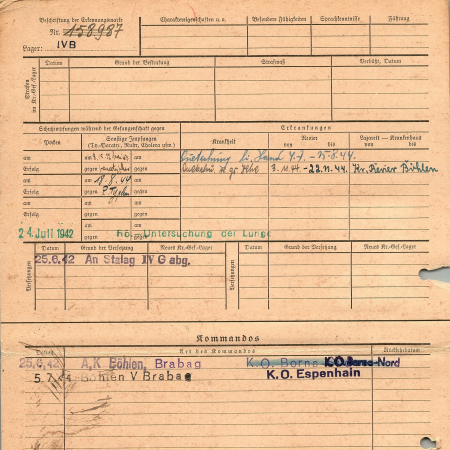 Beschriftung der Erkennungsmarke
Nr. 158987
Lager: IVB
Charaktereigenschaften u. a.
Besondere Fähigkeiten
Sprachkenntnisse
Führung
Strafen im Kr.-Gef.-Lager
Datum
Grund der Bestrafung
Strafmaß
Verbüßt, Datum
Schutzimpfungen während der Gefangenschaft gegen
Erkrankungen
Pocken
Sonstige Impfungen
(Ty.-Paratyf., Ruhr, Cholera usw.)
Krankheit
Revier
von bis
Lazarett — Krankenhaus
von bis
am am am
Erfolg gegen gegen
am am 18.8.44 am
Erfolg gegen gegen
am am am
Erfolg gegen gegen
li. Hand 4.8. - 15.8.44.
3.11.44 - 22.11.44. Kr. Revier Böhlen
24. Juli 1942 Rö.-Untersuchung der Lunge
Versetzungen
Datum
Grund der Versetzung
Neues Kr.-Gef.-Lager
Datum
Grund der Versetzung
Neues Kr.-Gef.-Lager
25.6.42 An Stalag IV G abg.
Kommandos
Datum
Art des Kommandos
Rückkehrdatum
25.6.42 A.K Böhlen, Brabag K.O. Borna K.O. Borna-Nord
5.7.44 Böhlen V Brabag K.O. Espenhain